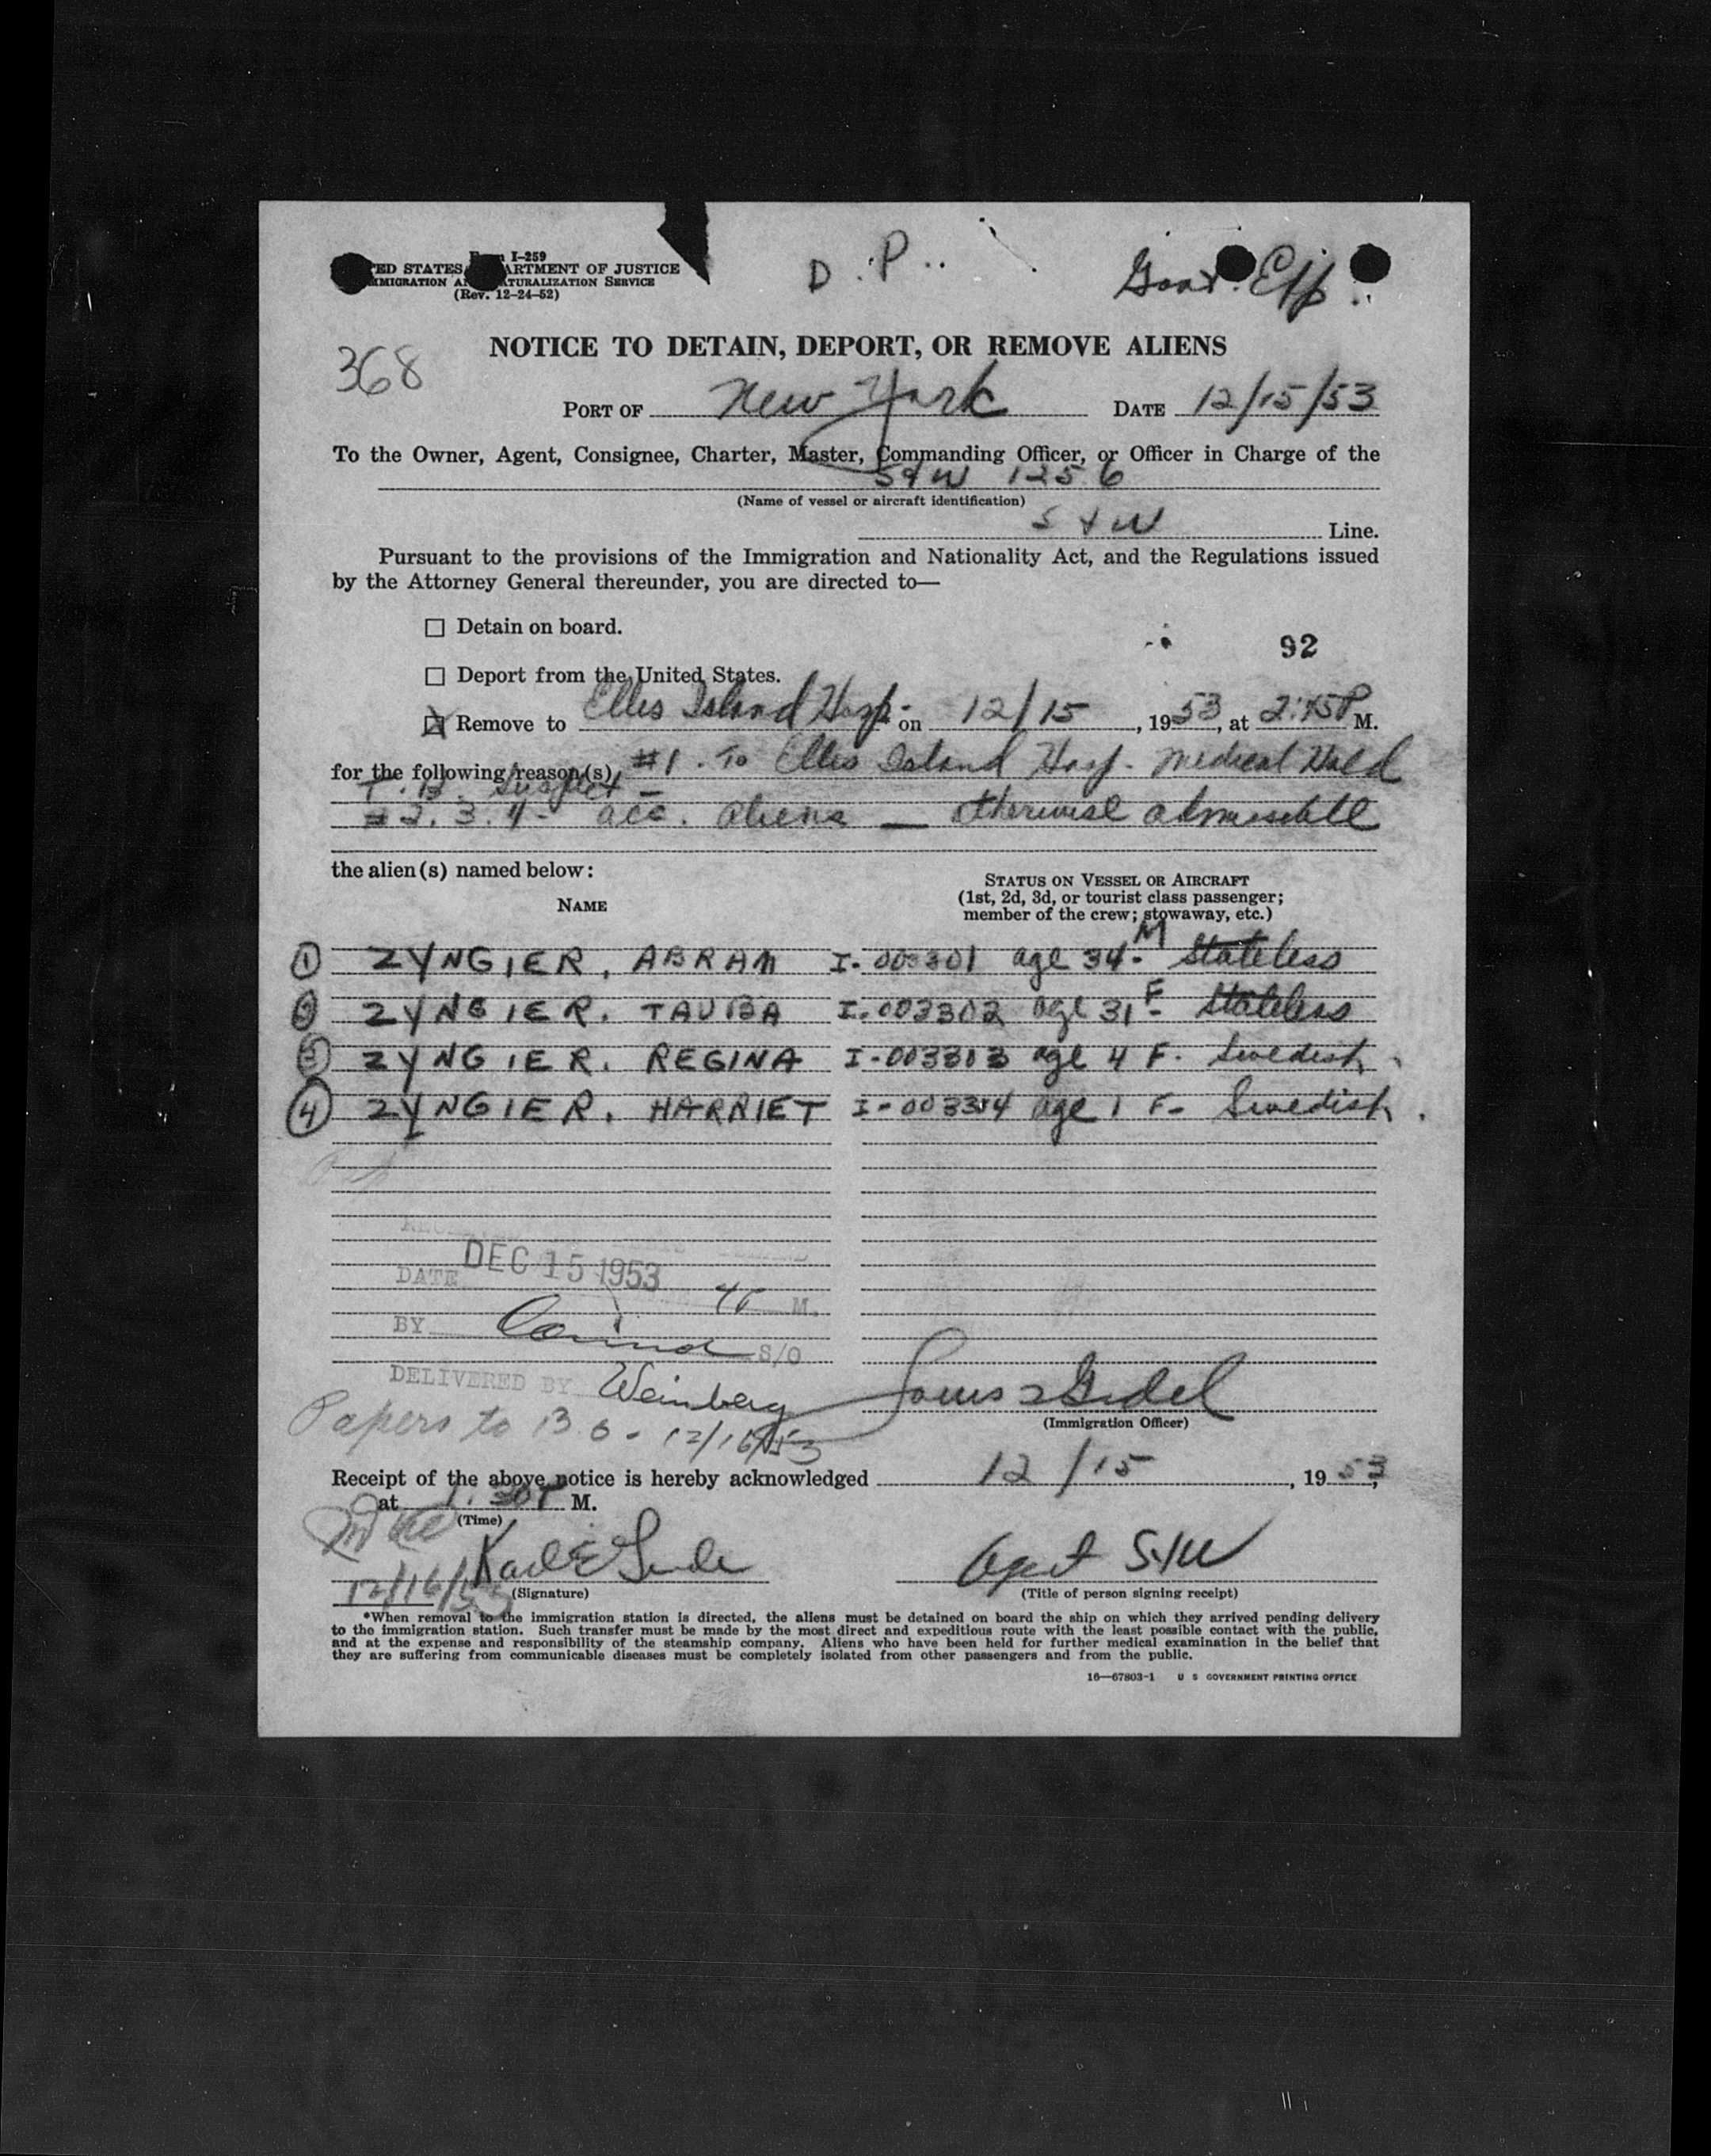 I-259
ED STATES ARTMENT OF JUSTICE
MMIGRATION A TURALIZATION SERVICE
(Rev. 12-24-52)
D.P.
Govt. Eff.
368
NOTICE TO DETAIN, DEPORT, OR REMOVE ALIENS
PORT OF New York DATE 12/15/53
To the Owner, Agent, Consignee, Charter, Master, Commanding Officer, or Officer in Charge of the
S&W 1256
(Name of vessel or aircraft identification)
S & W Line.
Pursuant to the provisions of the Immigration and Nationality Act, and the Regulations issued
by the Attorney General thereunder, you are directed to—
☐ Detain on board.
92
☐ Deport from the United States.
☒ Remove to Ellis Island Hosp. on 12/15, 1953, at 2:45P M.
for the following reason(s), #1. To Ellis Island Hosp. Medical Hold
T.B. Suspect —
#2. 3. 4 - acc. aliens — otherwise admissible
the alien(s) named below:
NAME
STATUS ON VESSEL OR AIRCRAFT
(1st, 2d, 3d, or tourist class passenger;
member of the crew; stowaway, etc.)
① ZYNGIER, ABRAM I-003301 age 34-M Stateless
② ZYNGIER, TAUBA I-003302 age 31 F- Stateless
③ ZYNGIER, REGINA I-003303 age 4 F. Swedish
④ ZYNGIER, HARRIET I-003304 age 1 F- Swedish.
DATE DEC 15 1953 M.
BY S/O
DELIVERED BY Weinberg
(Immigration Officer)
Papers to B.O. - 12/16/53
Receipt of the above notice is hereby acknowledged 12/15, 1953,
at 1:30P M.
(Time)
Karl E
Agent S&W
12/16/53
(Signature)
(Title of person signing receipt)
*When removal to the immigration station is directed, the aliens must be detained on board the ship on which they arrived pending delivery
to the immigration station. Such transfer must be made by the most direct and expeditious route with the least possible contact with the public,
and at the expense and responsibility of the steamship company. Aliens who have been held for further medical examination in the belief that
they are suffering from communicable diseases must be completely isolated from other passengers and from the public.
16—67803-1 U S GOVERNMENT PRINTING OFFICE